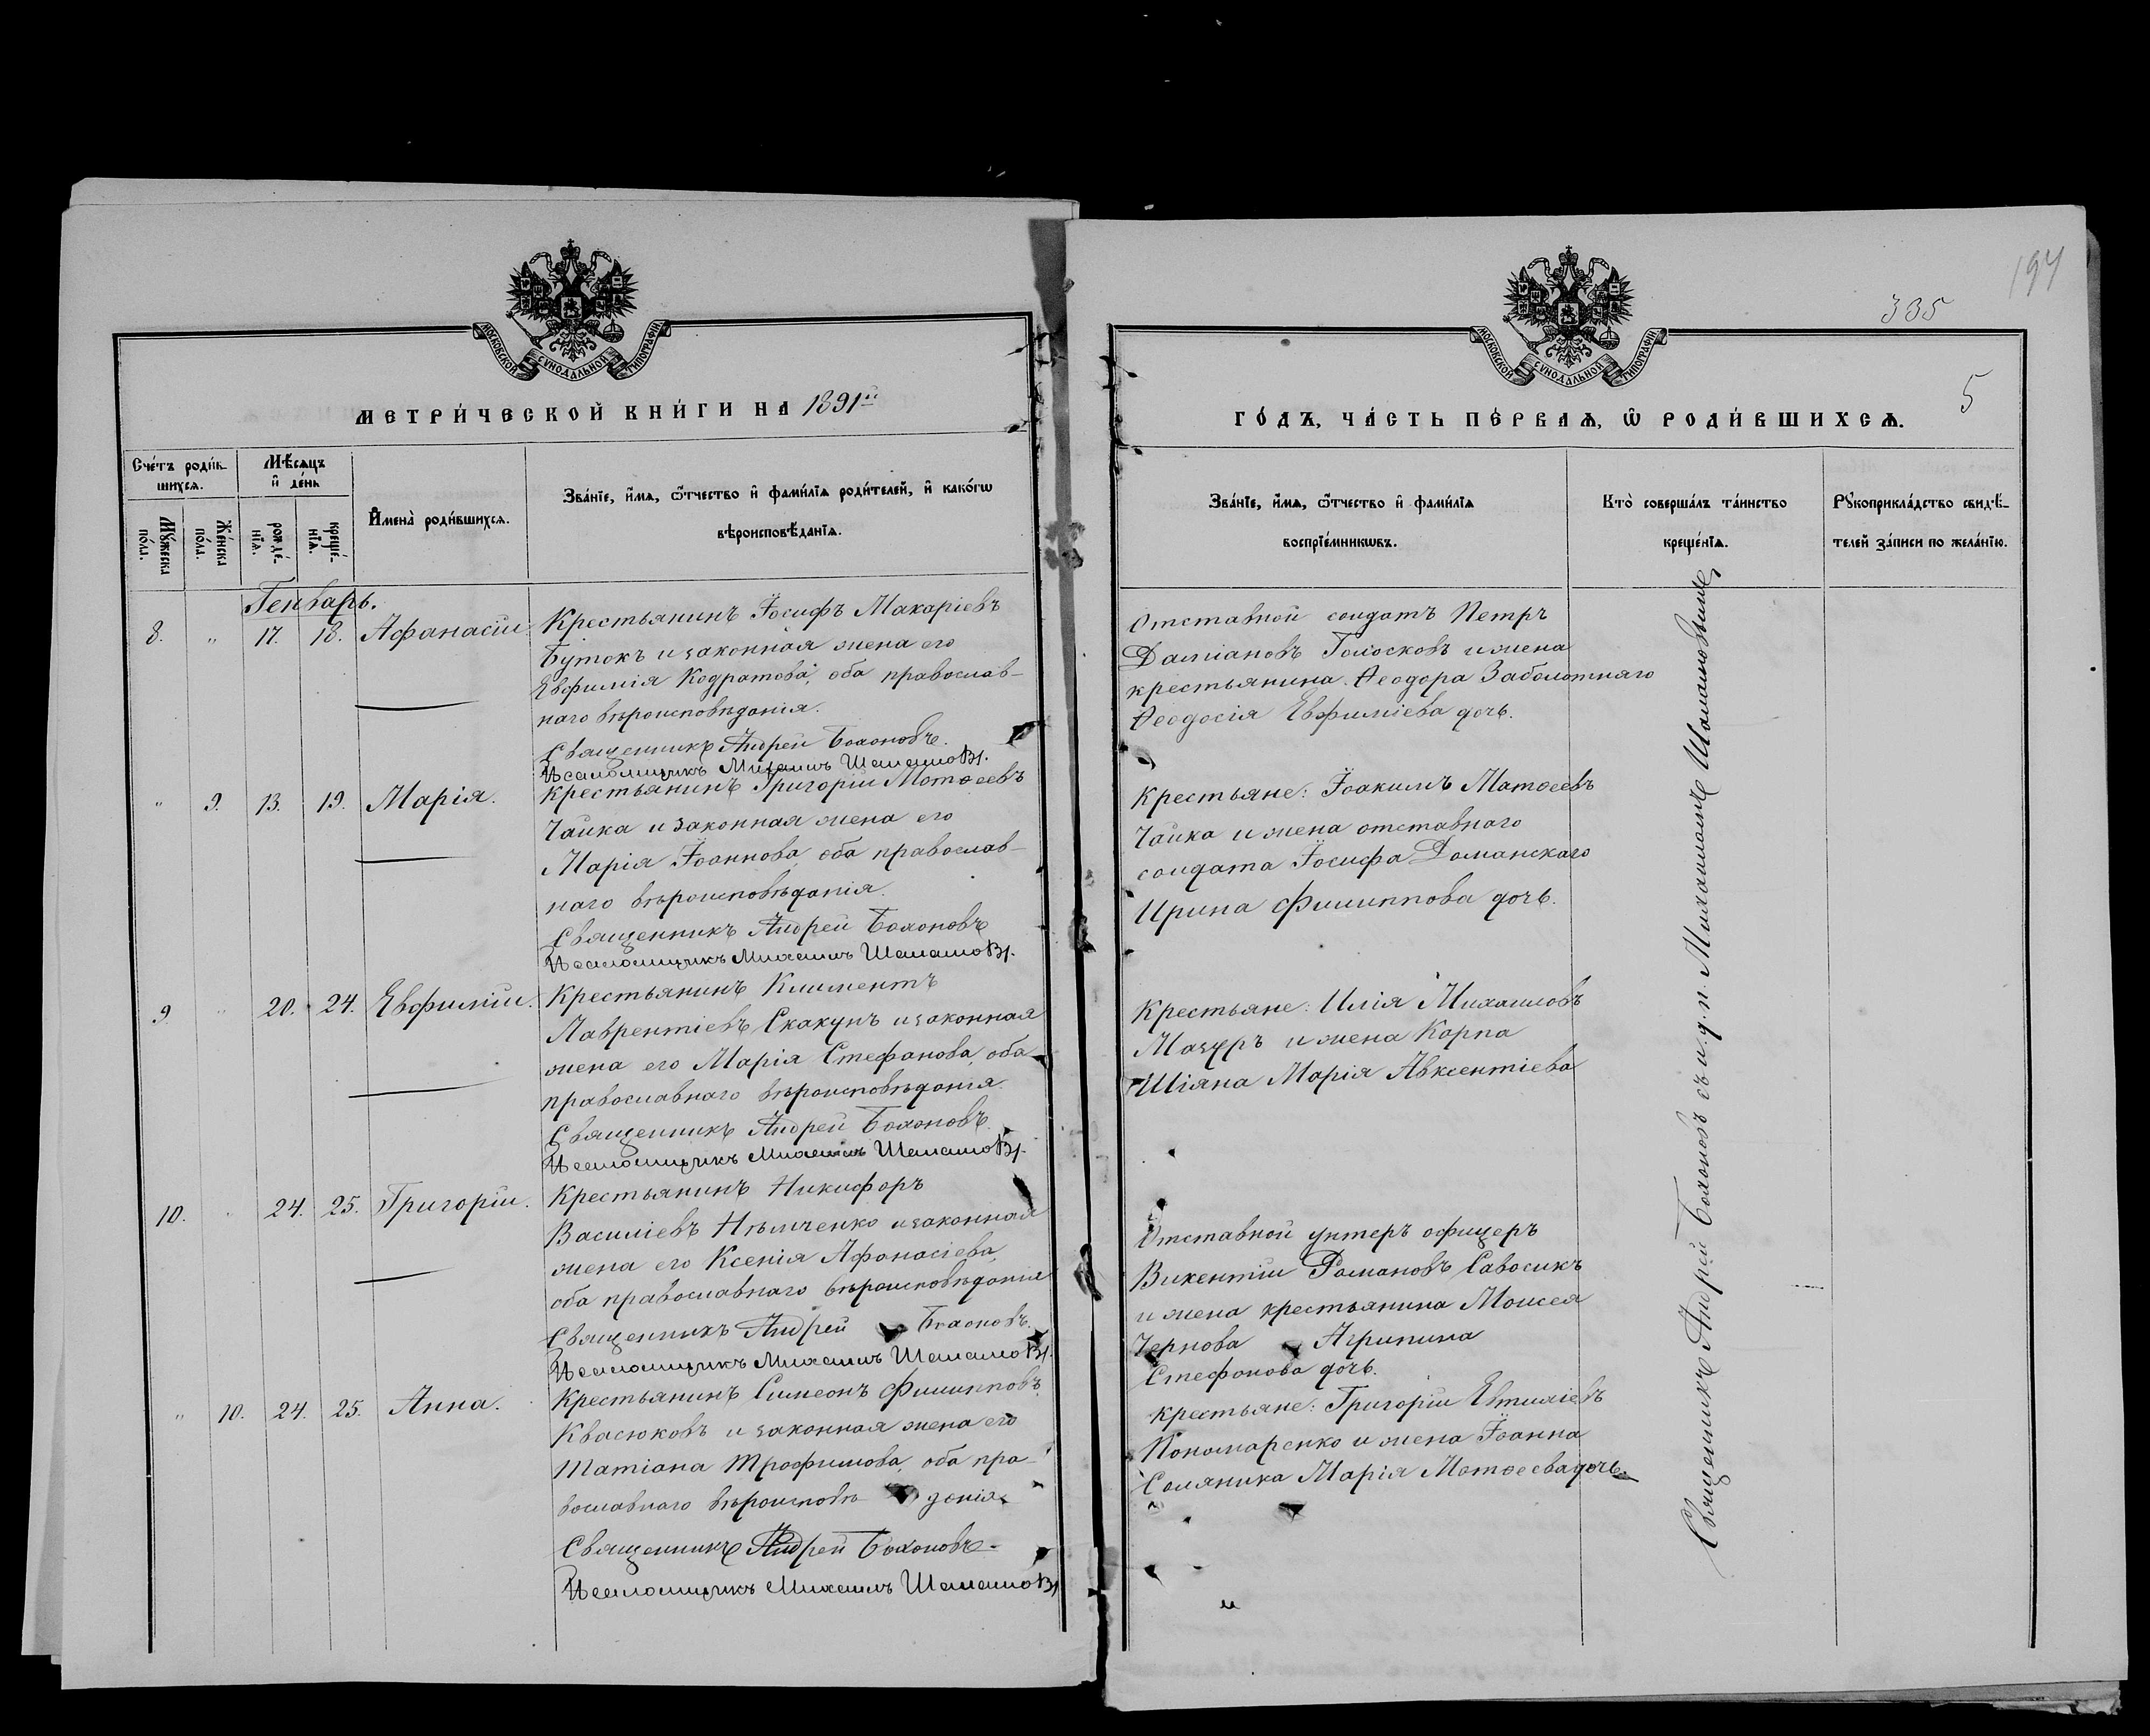 194
335
5
МОСКОВСКОЙ СУНОДАЛЬНОЙ ТИПОГРАФІИ
МЕТРИ́ЧЕСКОЙ КНИ́ГИ НА 1891й
Сче́тъ роди́в-
шихсѧ.
Мѣ́сѧцъ
и҆ де́нь
Мꙋ́жеска
по́лꙋ.
Же́нска
по́лꙋ.
рожде́-
нїѧ.
креще́-
нїѧ.
И҆мена̀ роди́вшихсѧ.
Зва́нїе, и҆́мѧ, ѻ҆́тчество и҆ фами́лїѧ роди́телей, и҆ како́гѡ
вѣроисповѣ́данїѧ.
Генварь.
8. " 17. 18. Афанасій
Крестьянинъ Іосифъ Макаріевъ
Бутокъ и законная жена его
Евфимія Кодратова, оба православ-
наго вѣроисповѣданія.
Священникъ Андрей Бохоновъ.
Псаломщикъ Михаилъ
" 9. 13. 19. Марія.
Крестьянинъ Григорій Матѳеевъ
Чайка и законная жена его
Марія Іоаннова, оба православ-
наго вѣроисповѣданія.
Священникъ Андрей Бохоновъ
Псаломщикъ Михаилъ
9 " 20. 24. Евфимій.
Крестьянинъ Климентъ
Лаврентіевъ Скакунъ и законная
жена его Марія Стефанова, оба
православнаго вѣроисповѣданія.
Священникъ Андрей Бохоновъ.
Псаломщикъ Михаилъ
10. " 24. 25. Григорій.
Крестьянинъ Никифоръ
Василіевъ Нѣмченко и законная
жена его Ксенія Афонасіева,
оба православнаго вѣроисповѣданія
Священникъ Андрей Бохоновъ.
Псаломщикъ Михаилъ
" 10. 24. 25. Анна.
Крестьянинъ Симеонъ Филипповъ
Квасюковъ и законная жена его
Татіана Трофимова, оба пра-
вославнаго вѣроисповѣданія.
Священникъ Андрей Бохоновъ.
Псаломщикъ Михаилъ
МОСКОВСКОЙ СУНОДАЛЬНОЙ ТИПОГРАФІИ
ГО́ДЪ, ЧА́СТЬ ПЕ́РВАѦ, Ѡ҆ РОДИ́ВШИХСѦ.
Зва́нїе, и҆́мѧ, ѻ҆́тчество и҆ фами́лїѧ
воспрїе́мникѡвъ.
Кто̀ соверша́лъ та́инство
креще́нїѧ.
Рꙋкоприкла́дство свидѣ́-
телей за́писи по жела́нїю.
Отставной солдатъ Петръ
Даміановъ Голосковъ и жена
крестьянина Ѳеодора Заболотняго
Ѳеодосія Евфиміева дочь.
Крестьяне: Іоакимъ Матѳеевъ
Чайка и жена отставного
солдата Іосифа Доманскаго
Ирина Филиппова дочь.
Крестьяне: Илія Михаиловъ
Мазуръ и жена Карпа
Шіяна Марія Авксентіева
Отставной унтеръ офицеръ
Викентій Романовъ Савосикъ
и жена крестьянина Моисея
Чернова Агрипина
Стефонова дочь.
Крестьяне: Григорій Евтихіевъ
Пономаренко и жена Іоанна
Соляника Марія Матѳеева дочь.
Священникъ Андрей Бохоновъ съ и. д. п. Михаиломъ